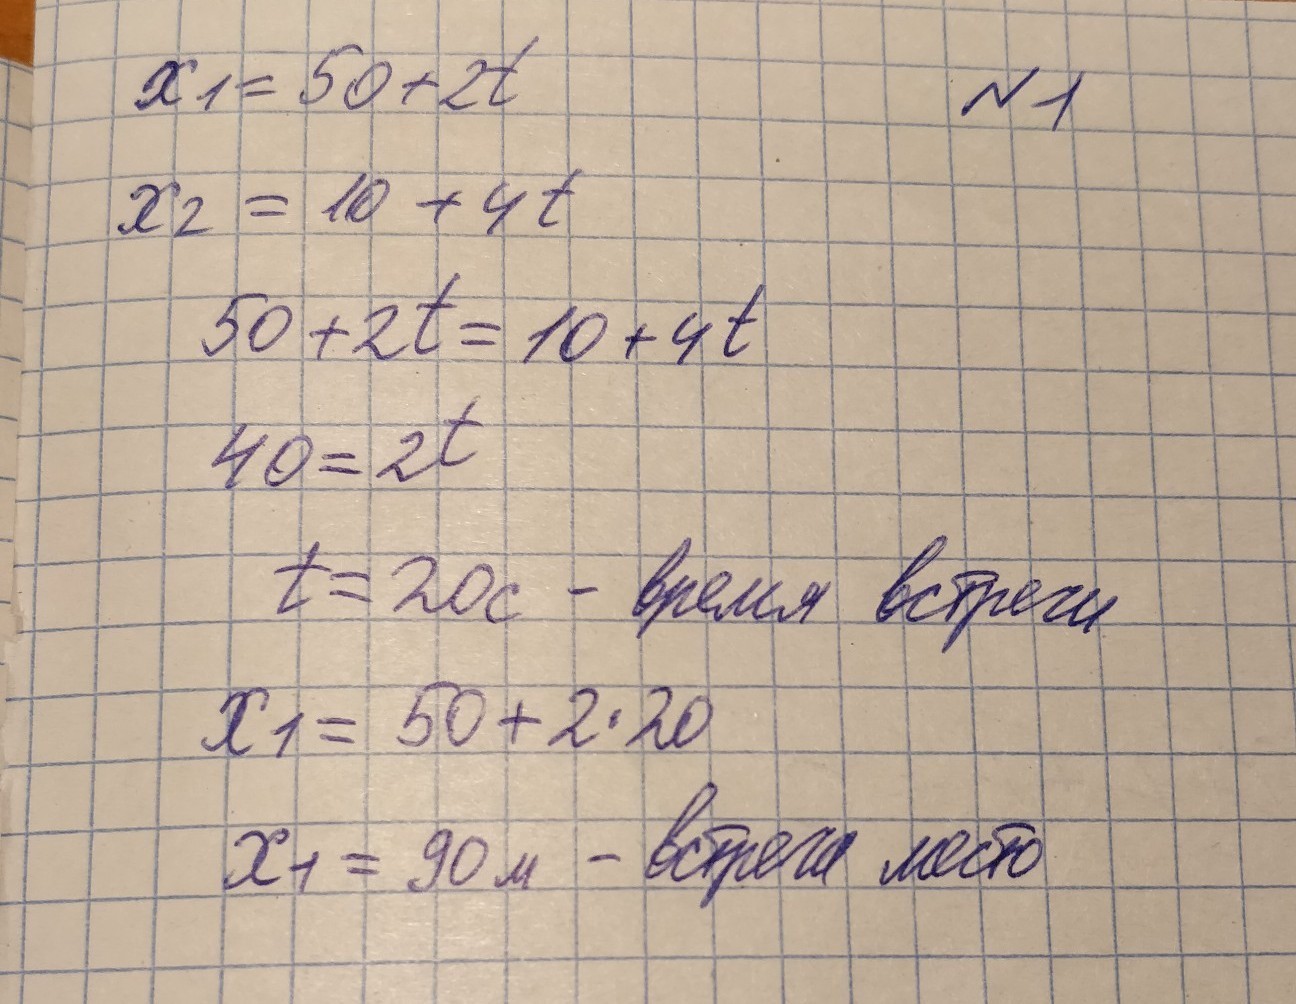 x₁ = 50 + 2t
№1
x₂ = 10 + 4t
50 + 2t = 10 + 4t
40 = 2t
t = 20с - время встречи
x₁ = 50 + 2 · 20
x₁ = 90м - встреча место